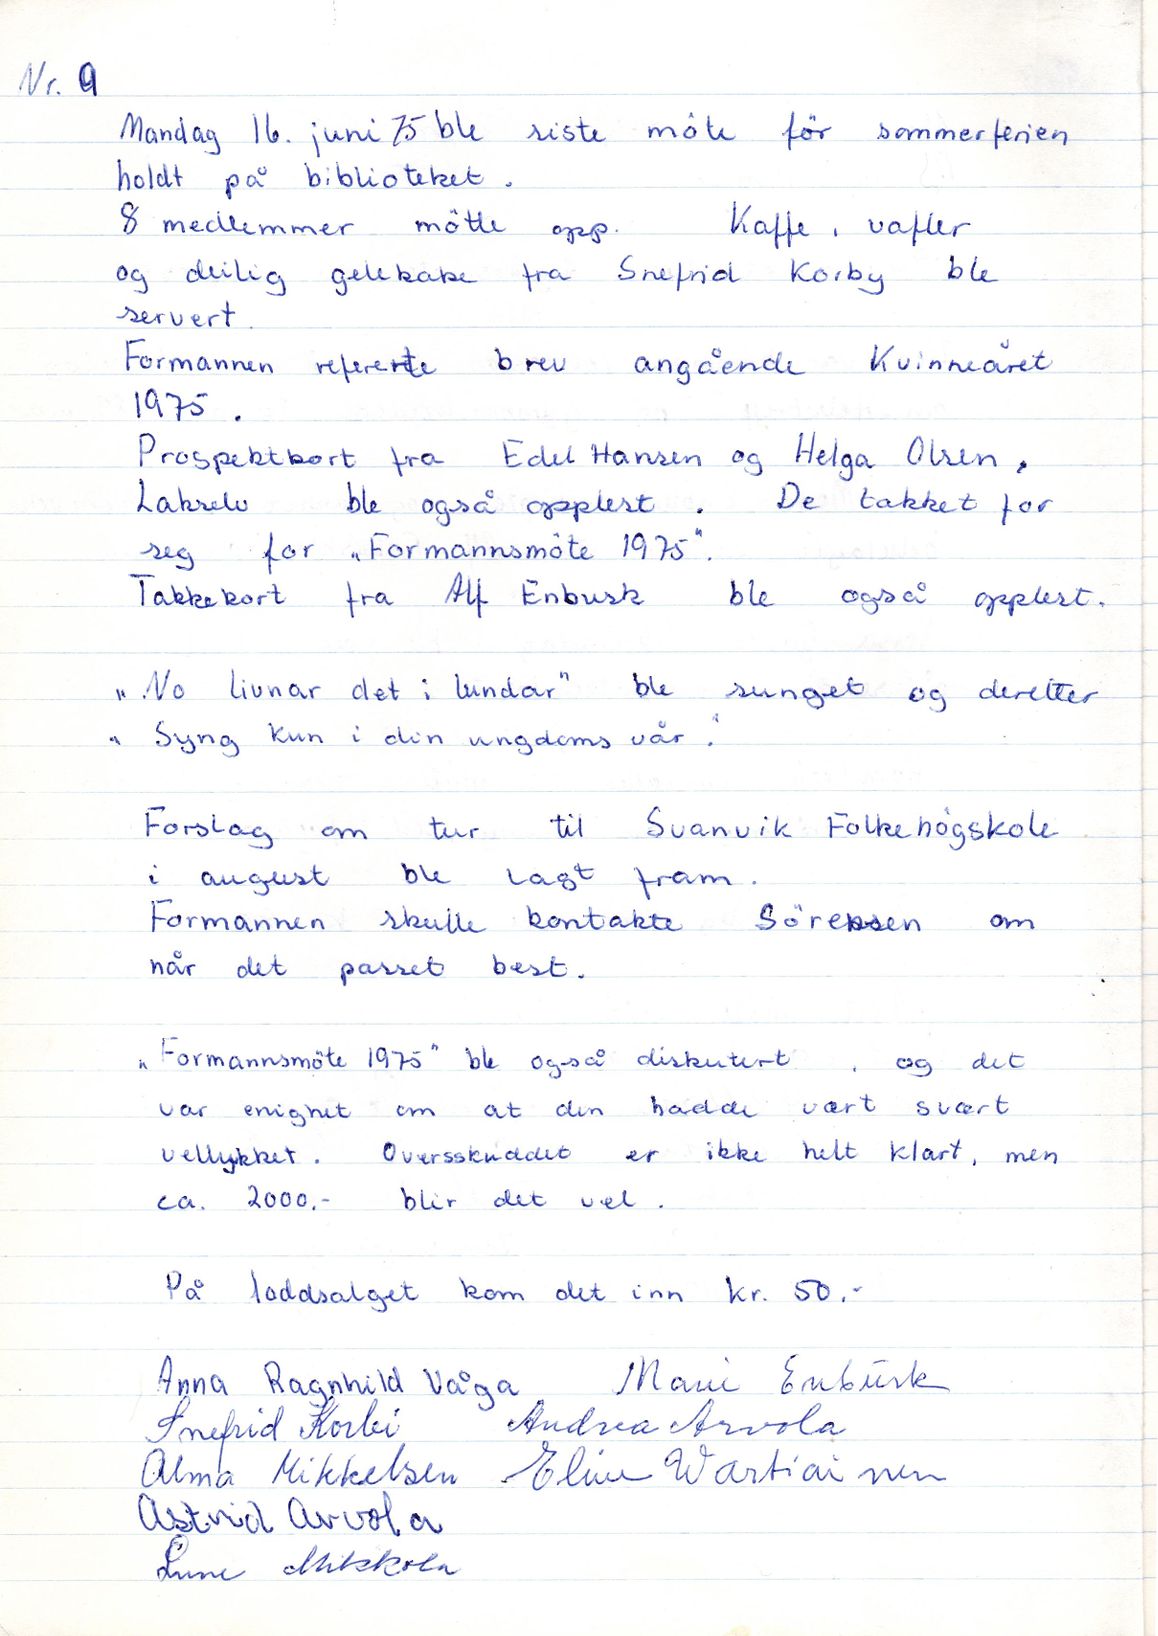 Nr. 9
Mandag 16. juni 75 ble siste möte för sommerferien
holdt på biblioteket.
8 medlemmer mötte opp. Kaffe, vafler
og deilig gelekake fra Snefrid Korby ble
servert.
Formannen refererte brev angående Kvinneåret
1975.
Prospektkort fra Edel Hansen og Helga Olsen,
Lakselv ble også opplest. De takket for
seg for „Formannsmöte 1975".
Takkekort fra Alf Enbusk ble også opplest.
„No livnar det i lundar" ble sunget og deretter
„Syng kun i din ungdoms vår".
Forslag om tur til Svanvik Folkehögskole
i august ble lagt fram.
Formannen skulle kontakte Sörensen om
når det passet best.
„Formannsmöte 1975" ble også diskutert, og det
var enighet om at den hadde vært svært
vellykket. Oversskuddet er ikke helt klart, men
ca. 2000,- blir det vel.
På loddsalget kom det inn kr. 50,-
Anna Ragnhild Våga Marie Enbusk
Snefrid Korbi Andrea Arvola
Alma Mikkelsen Eline Wartiainen
Astrid Arvola
Mikkola